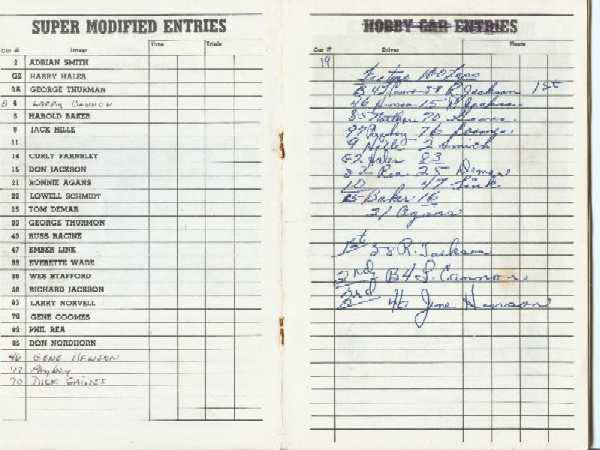 SUPER MODIFIED ENTRIES
Car # Driver Time Trials
2 ADRIAN SMITH
G2 HARRY HALES
3A GEORGE THURMAN
B 4 Larry Cannon
5 HAROLD BAKER
9 JACK HILLE
11
14 CURLY PARNSLEY
15 DON JACKSON
21 RONNIE AGANS
22 LOWELL SCHMIDT
25 TOM DEMAR
33 GEORGE THURMON
43 RUSS RACINE
47 EMBER LINK
55 EVERETTE WADE
WES STAFFORD
58 RICHARD JACKSON
83 LARRY NORVELL
76 GENE COOMES
82 PHIL REA
85 DON NORDHORN
46 GENE
77
70 DICK GAINES
HOBBY CAR ENTRIES
Car # Driver Heats
19
100 Laps
B 4 58 R Jackson 1st
46 15 Jackson
85 70
76
9 Hille 2 Smith
G2 Hales 83
82 Rea 25 Demar
10 47 Link
5 Baker 16
21 Agans
1st 58 R. Jackson
2nd B4 L. Cannon
3rd 46 Gene